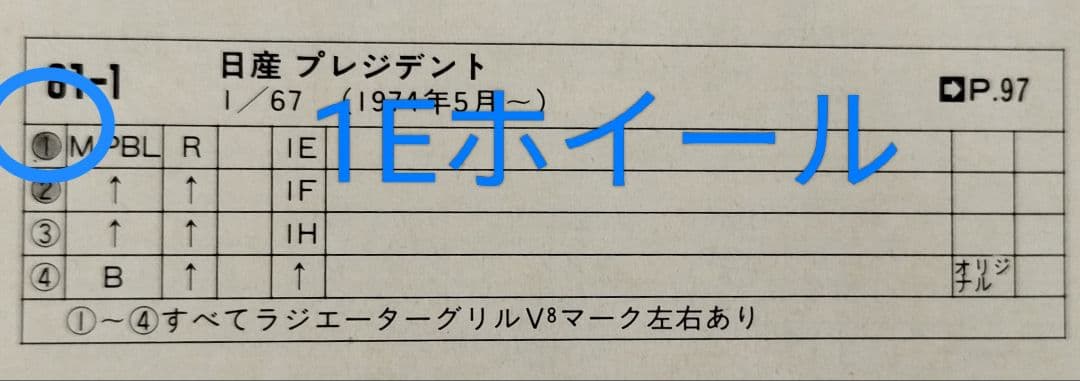 61-1
日産 プレジデント
1/67 (1974年5月~)
➡P.97
① MPBL R 1E
② ↑ ↑ 1F
③ ↑ ↑ 1H
④ B ↑ ↑ オリジナル
①~④すべてラジエーターグリルV8マーク左右あり
1Eホイール